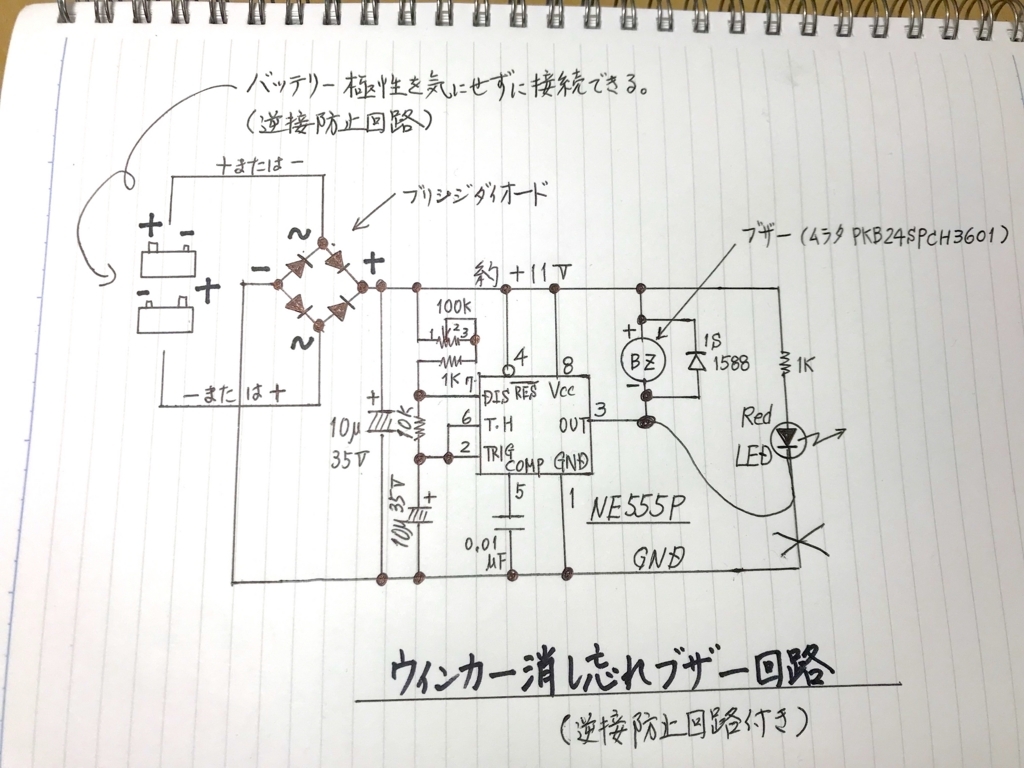 バッテリー極性を気にせずに接続できる。
(逆接防止回路)
+または−
ブリッジダイオード
ブザー(ムラタ PKB24SPCH3601)
+ -
- +
~
- +
~
−または+
約 +11V
100K
1 2 3
1K
10K
10μ
35V
10μ35V
+
+
4
8
7
6
2
3
5
1
DIS
RES
Vcc
T.H
OUT
TRIG
COMP
GND
0.01
μF
NE555P
GND
+
BZ
-
1S
1588
1K
Red
LED
ウィンカー消し忘れブザー回路
(逆接防止回路付き)